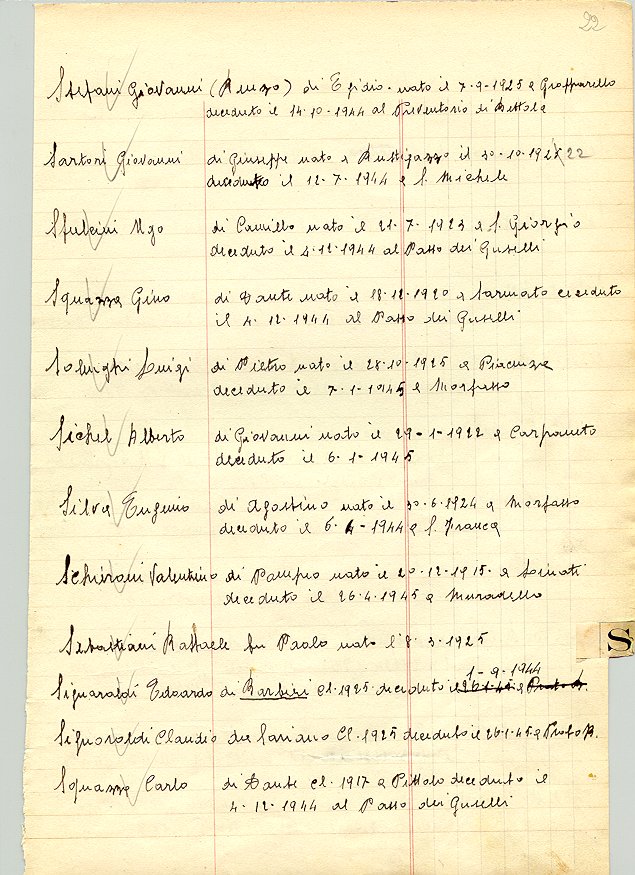 22
Stefani Giovanni (Renzo) di Egidio. nato il 7-9-1925 a Gropparello
deceduto il 14-10-1944 al Preventorio di Bettola
Sartori Giovanni di Giuseppe nato a Rustigazzo il 30-10-1925 22
deceduto il 12-7-1944 a S. Michele
Sfulcini Ugo di Camillo nato il 21-7-1923 a S. Giorgio
deceduto il 4-12-1944 al Passo dei Guselli
Squazza Gino di Dante nato il 18-12-1920 a Sarmato deceduto
il 4-12-1944 al Passo dei Guselli
Solenghi Luigi di Pietro nato il 28-10-1925 a Piacenza
deceduto il 7-1-1945 a Morfasso
Sichel Alberto di Giovanni nato il 29-1-1922 a Carpaneto
deceduto il 6-1-1945
Silva Eugenio di Agostino nato il 30-6-1924 a Morfasso
deceduto il 6-4-1944 a S. Franca
Schironi Valentino di Pompeo nato il 20-12-1915 a
deceduto il 26-4-1945 a Muradello
Sebastiani Raffaele fu Paolo nato l'8-3-1925
S
1-9-1944
Signaroldi Edoardo di Barbieri Cl. 1925 deceduto il 26-1-45 a Prato B.
Signoroldi Claudio di Cl. 1925 deceduto il 26-1-45 a Prato B.
Squazza Carlo di Dante cl. 1917 a Pittolo deceduto il
4-12-1944 al Passo dei Guselli